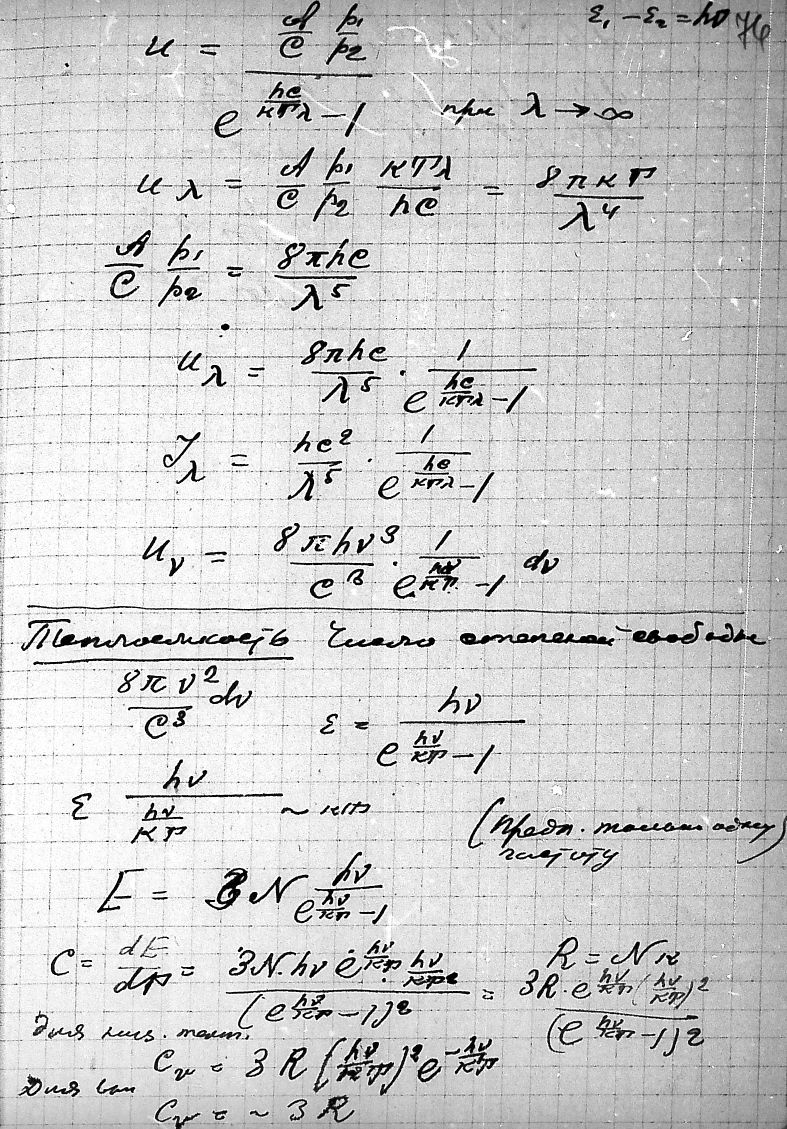 ε₁ − ε₂ = hν 76
u = (A/C · p₁/p₂) / (e^(hc/кTλ) − 1) при λ → ∞
u λ = A/C p₁/p₂ кTλ/hc = 8πкT/λ⁴
A/C p₁/p₂ = 8πhc/λ⁵
u_λ = 8πhc/λ⁵ · 1/(e^(hc/кTλ) − 1)
J_λ = hc²/λ⁵ · 1/(e^(hc/кTλ) − 1)
u_ν = 8πhν³/c³ · 1/(e^(hν/кT) − 1) dν
Теплоемкость Число степеней свободы
8πν²/c³ dν ε = hν/(e^(hν/кT) − 1)
ε hν/(hν/кT) ~ кT
(Предп. только одну
частоту)
E = 3N hν/(e^(hν/кT) − 1)
R = Nк
C = dE/dT = 3N·hν e^(hν/кT) · hν/кT² / (e^(hν/кT) − 1)² = 3R·e^(hν/кT) (hν/кT)² / (e^(hν/кT) − 1)²
Для низ. темп.
C_v = 3R (hν/кT)² e^(−hν/кT)
Для выс
C_v = ~ 3R